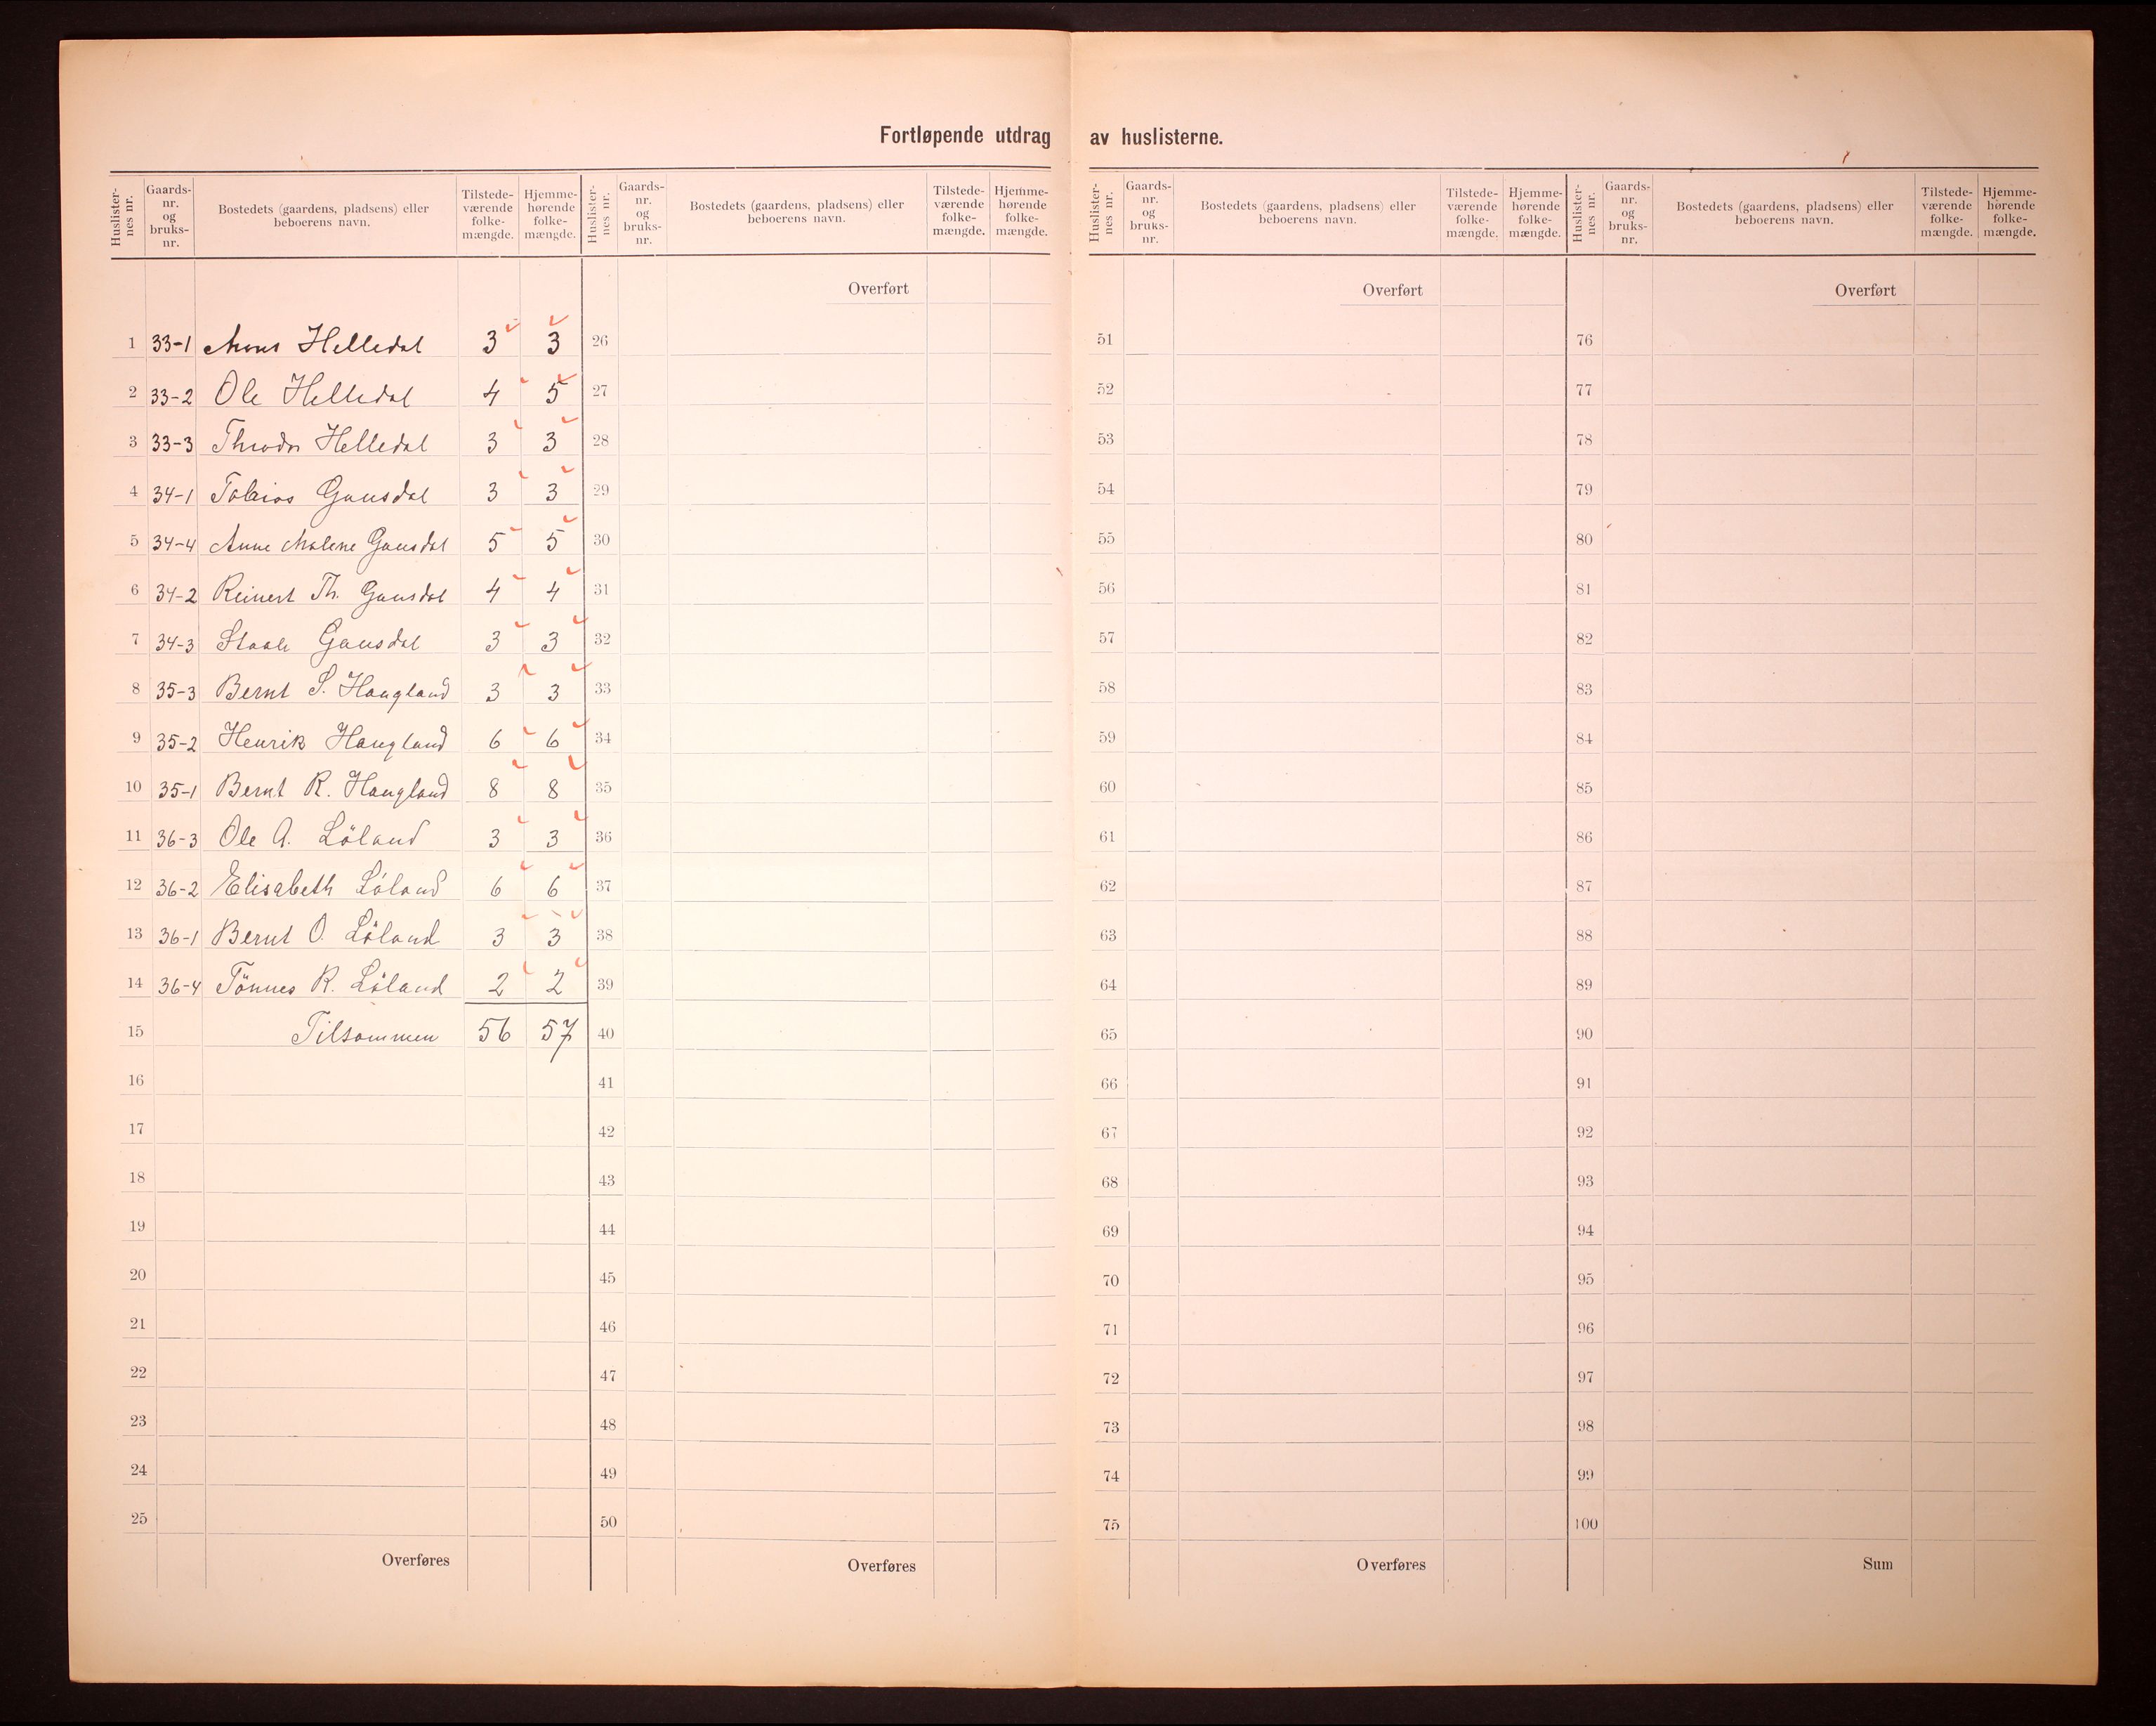 Fortløpende utdrag av huslisterne.
Huslister-nes nr. Gaards-nr. og bruks-nr. Bostedets (gaardens, pladsens) eller beboerens navn. Tilstede-værende folke-mængde. Hjemme-hørende folke-mængde.
Huslister-nes nr. Gaards-nr. og bruks-nr. Bostedets (gaardens, pladsens) eller beboerens navn. Tilstede-værende folke-mængde. Hjemme-hørende folke-mængde.
Huslister-nes nr. Gaards-nr. og bruks-nr. Bostedets (gaardens, pladsens) eller beboerens navn. Tilstede-værende folke-mængde. Hjemme-hørende folke-mængde.
Huslister-nes nr. Gaards-nr. og bruks-nr. Bostedets (gaardens, pladsens) eller beboerens navn. Tilstede-værende folke-mængde. Hjemme-hørende folke-mængde.
Overført Overført Overført
1 33-1 Helledal 3 3 26 51 76
2 33-2 Ole Helledal 4 5 27 52 77
3 33-3 Theodor Helledal 3 3 28 53 78
4 34-1 Tobias Gausdal 3 3 29 54 79
5 34-4 Anne Malene Gausdal 5 5 30 55 80
6 34-2 Reinert Th. Gausdal 4 4 31 56 81
7 34-3 Staale Gausdal 3 3 32 57 82
8 35-3 Bernt S. Haugland 3 3 33 58 83
9 35-2 Henrik Haugland 6 6 34 59 84
10 35-1 Bernt R. Haugland 8 8 35 60 85
11 36-3 Ole A. Löland 3 3 36 61 86
12 36-2 Elisabeth Löland 6 6 37 62 87
13 36-1 Bernt O. Löland 3 3 38 63 88
14 36-4 Tönnes R. Löland 2 2 39 64 89
15 Tilsammen 56 57 40 65 90
16 41 66 91
17 42 67 92
18 43 68 93
19 44 69 94
20 45 70 95
21 46 71 96
22 47 72 97
23 48 73 98
24 49 74 99
25 50 75 100
Overføres Overføres Overføres Sum